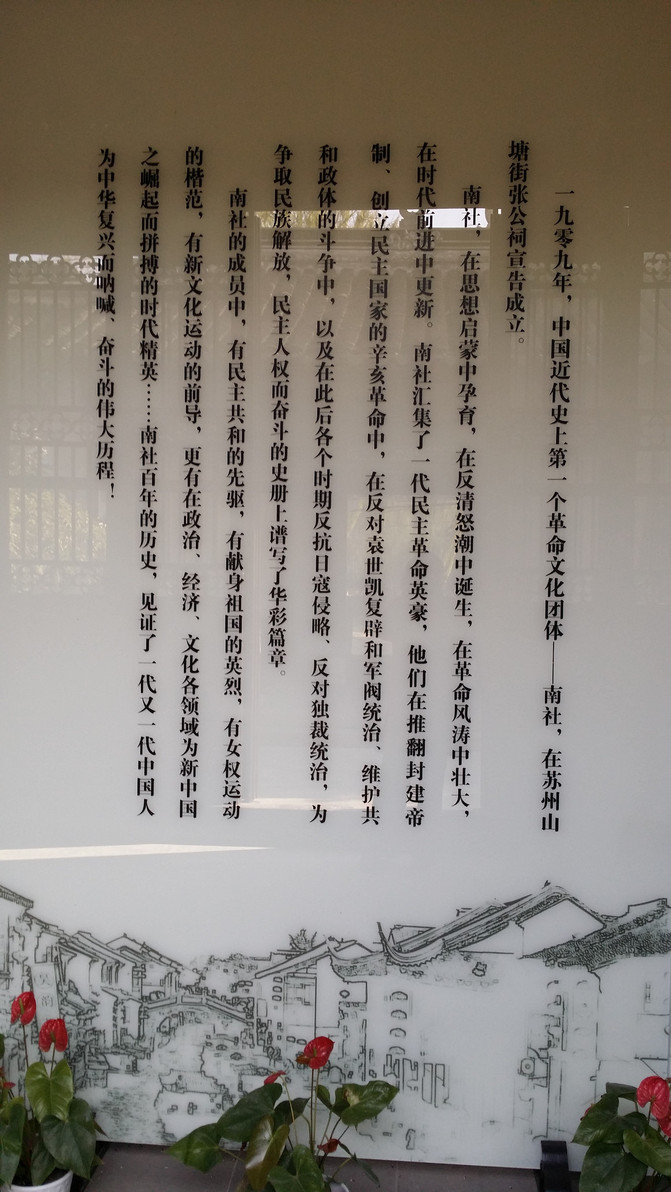 一九零九年，中国近代史上第一个革命文化团体——南社，在苏州山
塘街张公祠宣告成立。
南社，在思想启蒙中孕育，在反清怒潮中诞生，在革命风涛中壮大，
在时代前进中更新。南社汇集了一代民主革命英豪，他们在推翻封建帝
制、创立民主国家的辛亥革命中，在反对袁世凯复辟和军阀统治、维护共
和政体的斗争中，以及在此后各个时期反抗日寇侵略、反对独裁统治，为
争取民族解放，民主人权而奋斗的史册上谱写了华彩篇章。
南社的成员中，有民主共和的先驱，有献身祖国的英烈，有女权运动
的楷范，有新文化运动的前导，更有在政治、经济、文化各领域为新中国
之崛起而拼搏的时代精英……南社百年的历史，见证了一代又一代中国人
为中华复兴而呐喊、奋斗的伟大历程！